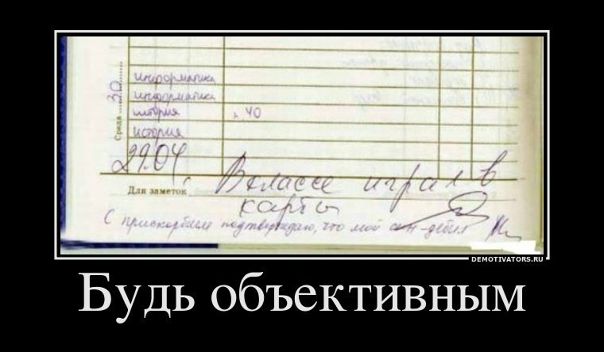 30
Среда
информатика
информатика
история
история
§ 40
29.04
Для заметок
В классе играл в
карты
С прискорбием подтверждаю, что мой сын - дебил
DEMOTIVATORS.RU
Будь объективным